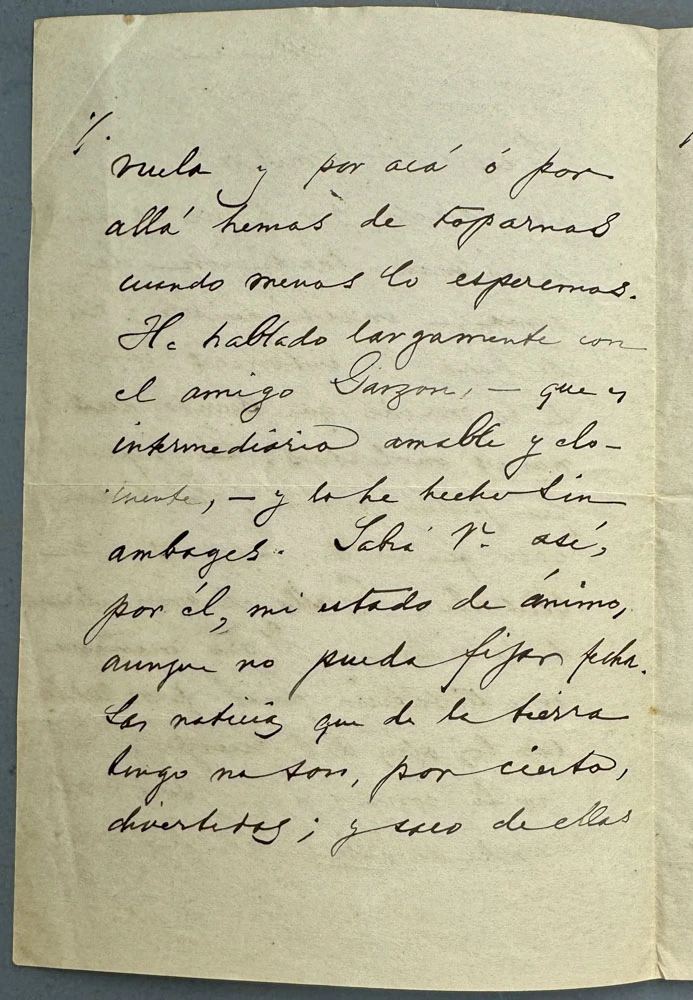 ./.
vuela y por acá ó por
allá hemos de toparnos
cuando menos lo esperemos.
He hablado largamente con
el amigo Garzon, — que es
intermediario amable y elo-
cuente, — y lo he hecho sin
ambages. Sabrá V. así,
por él, mi estado de ánimo,
aunque no pueda fijar fecha.
Las noticias que de la tierra
tengo no son, por cierto,
divertidas; y saco de ellas